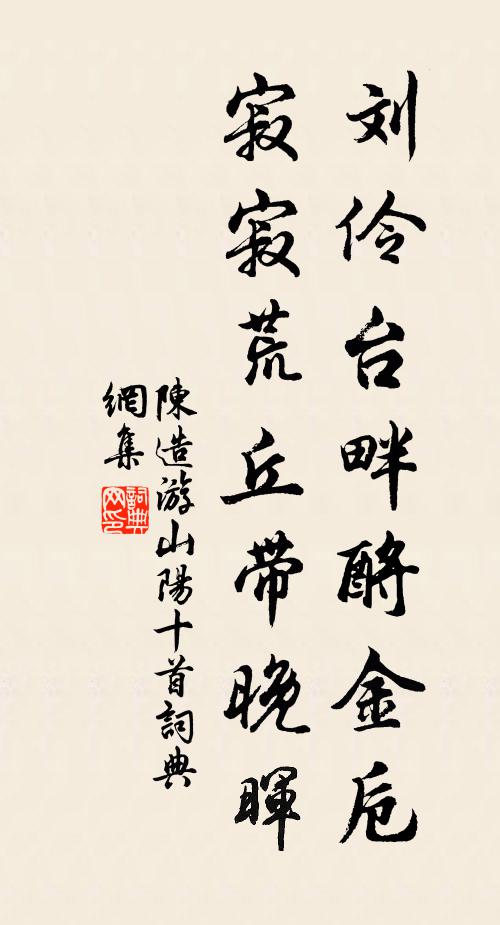 刘伶台畔酹金卮
寂寂荒丘带晚晖
陳造游山陽十首詞典
網集
詞典
网印